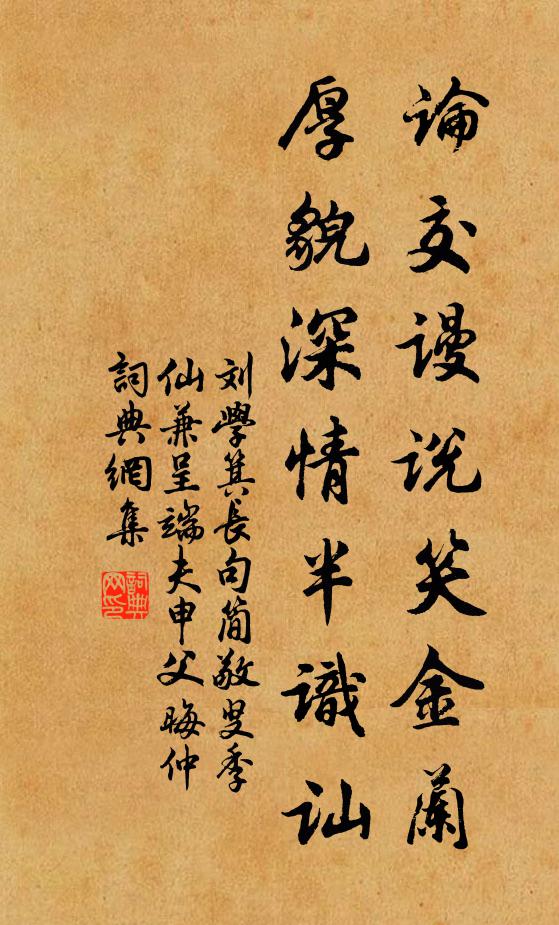 論交謾说笑金蘭
厚貌深情半識訕
刘學箕長句简敬叟季
仙兼呈端夫申父晦仲
詞典網集
詞典
网印